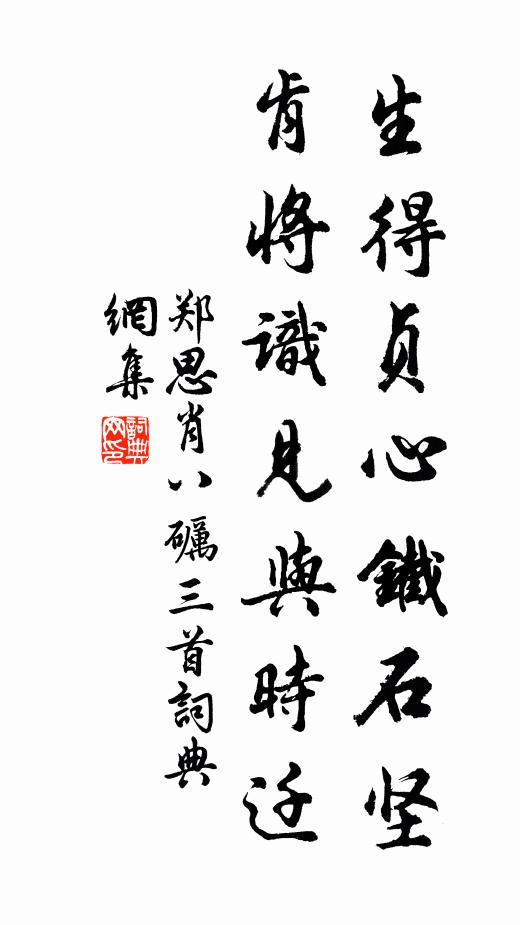 生得贞心鐵石坚
肯將識見與時迁
郑思肖八礪三首詞典
網集
詞典網印